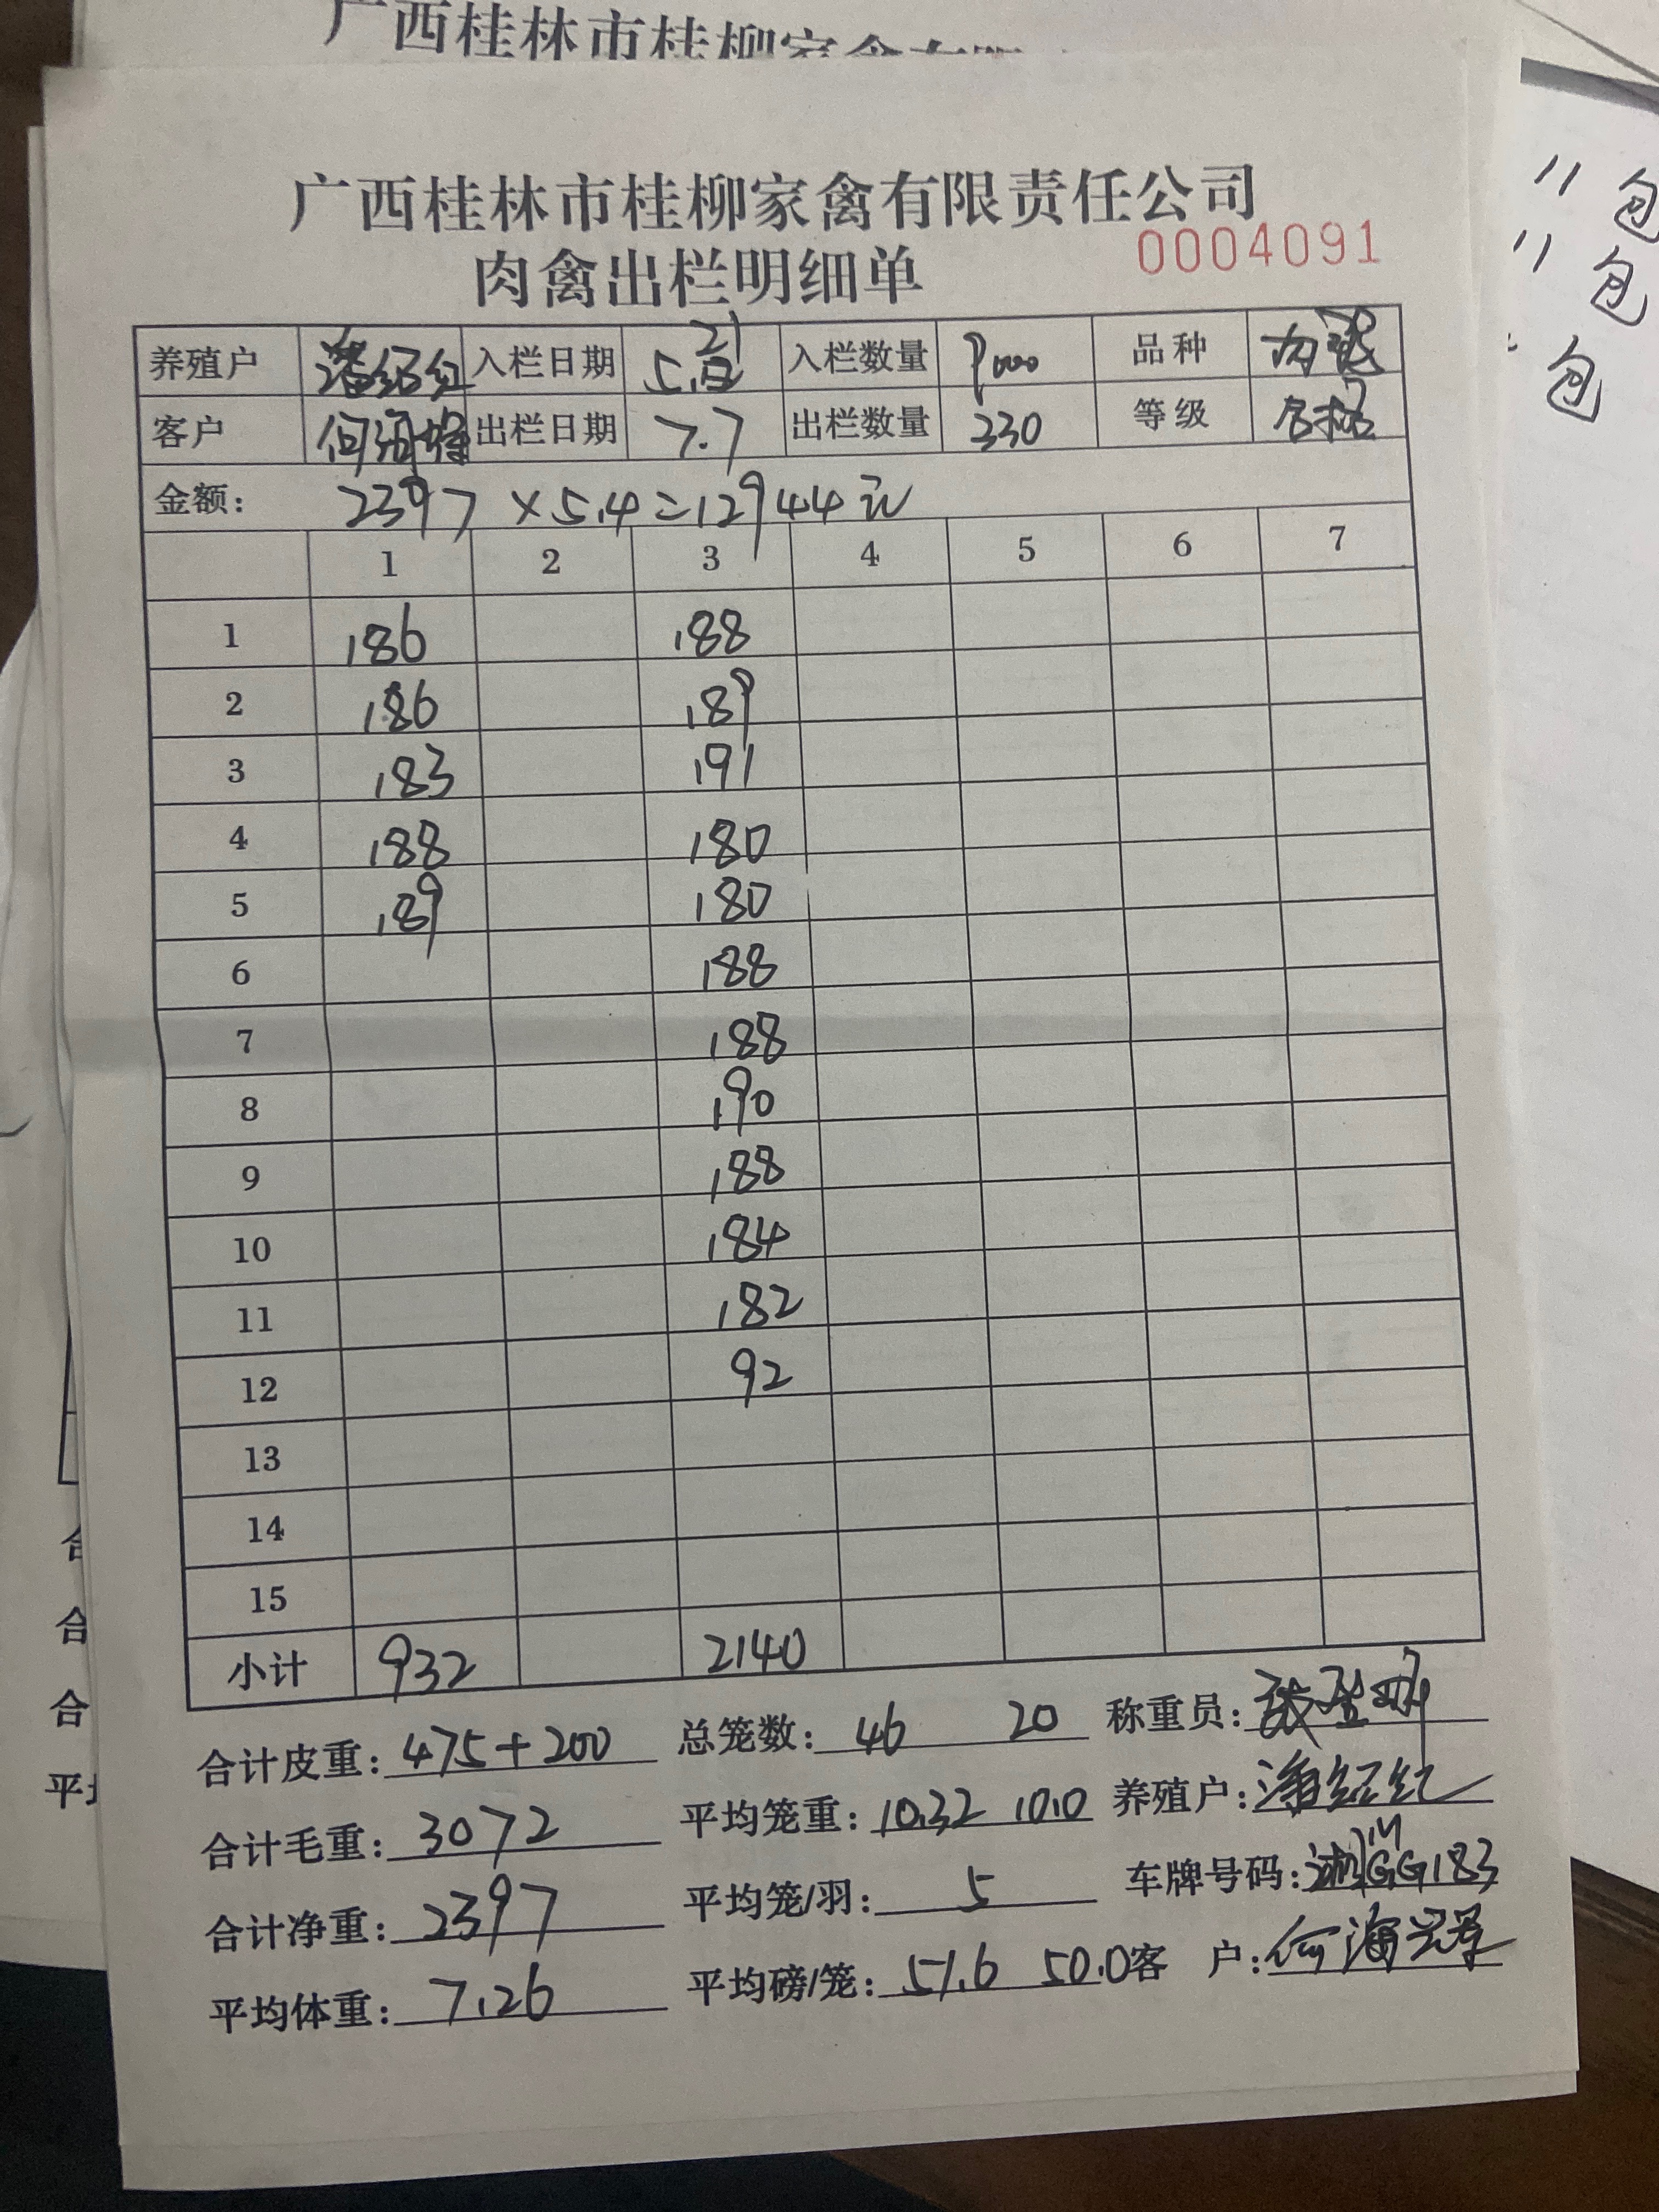 广西桂林市桂柳家禽有限责任公司
肉禽出栏明细单 0004091
养殖户 潘绍红 入栏日期 5.21 入栏数量 9000 品种
客户 出栏日期 7.7 出栏数量 330 等级 合格
金额: 2397 × 5.4 = 12944元
1 2 3 4 5 6 7
1 186 188
2 186 189
3 183 191
4 188 180
5 189 180
6 188
7 188
8 190
9 188
10 184
11 182
12 92
13
14
15
小计 932 2140
合计皮重: 475+200 总笼数: 46 20 称重员:
合计毛重: 3072 平均笼重: 10.32 10.0 养殖户: 潘绍红
合计净重: 2397 平均笼/羽: 5 车牌号码:
平均体重: 7.26 平均磅/笼: 51.6 50.0 客 户:
11 包
11 包
包